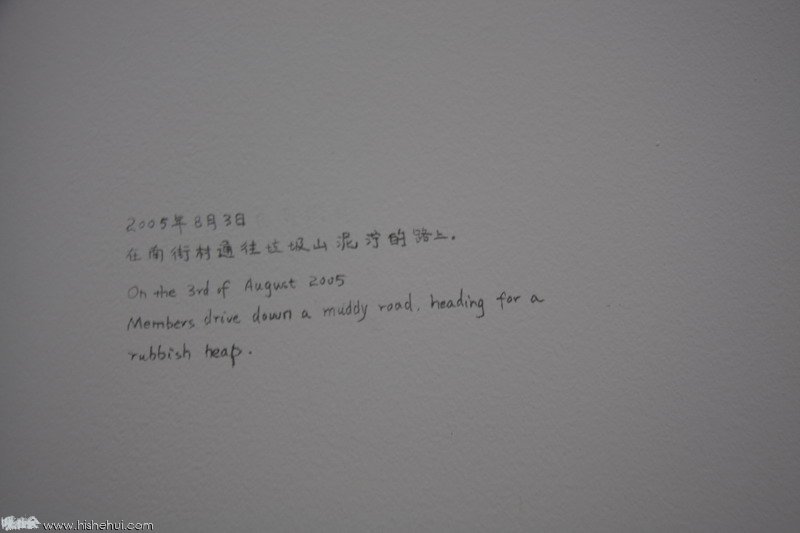 2005年8月3日
在南街村通往垃圾山泥泞的路上.
On the 3rd of August 2005
Members drive down a muddy road, heading for a
rubbish heap.
www.hishehui.com